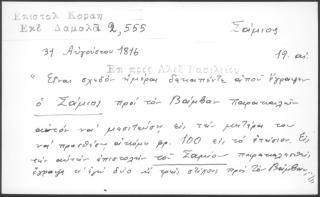 Ἐπιστολ Κοραῆ
Ἐκδ Δαμαλᾶ 2,555
Σάμιος
31 Αὐγούστου 1816
19. αἰ.
Ἐπ πρὸς Ἀλεξ Βασιλείου
"Εἶναι σχεδὸν ἡμέραι δεκαπέντε ἀφοῦ ἔγραψεν
ὁ Σάμιος πρὸς τὸν Βάμβαν παρακαλῶν
αὐτὸν νὰ μεσιτεύσῃ εἰς τὴν μητέρα του
νὰ προσθέσῃ ἀκόμη φρ. 100 εἰς τὸ ἐτήσιον. Εἰς
τὴν αὐτὴν ἐπιστολὴν τοῦ Σαμίου παρακληθεὶς
ἔγραψα κ' ἐγὼ δύο ἢ τρεῖς στίχους πρὸς τὸν Βάμβαν